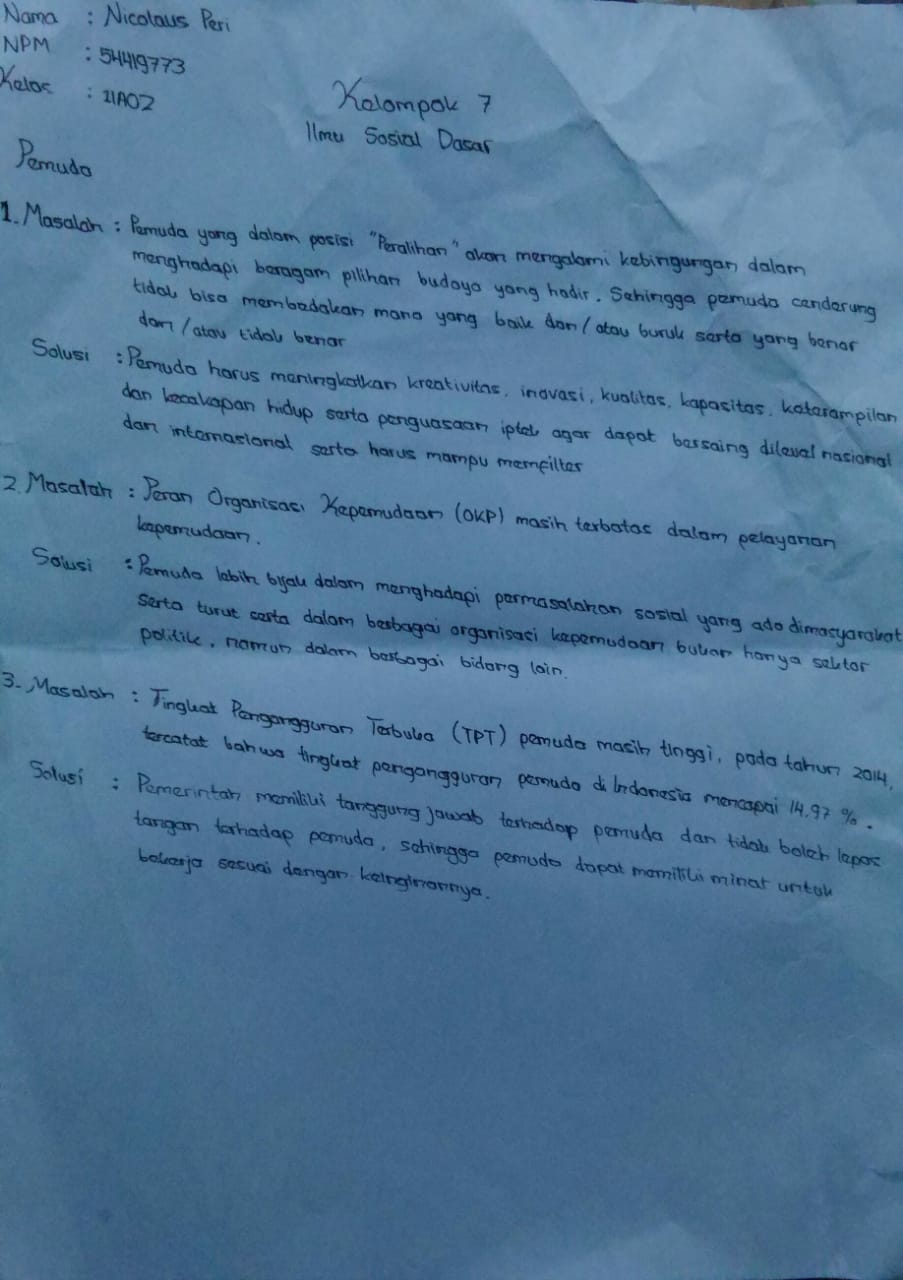 Nama : Nicolaus Peri
NPM : 54419773
Kelas : 21A02
Kelompok 7
Ilmu Sosial Dasar
Pemuda
1. Masalah : Pemuda yang dalam posisi "Peralihan" akan mengalami kebingungan dalam
menghadapi beragam pilihan budaya yang hadir. Sehingga pemuda cenderung
tidak bisa membedakan mana yang baik dan/atau buruk serta yang benar
dan/atau tidak benar
Solusi : Pemuda harus meningkatkan kreativitas, inovasi, kualitas, kapasitas, keterampilan
dan kecakapan hidup serta penguasaan iptek agar dapat bersaing dilevel nasional
dan internasional serta harus mampu memfilter
2. Masalah : Peran Organisasi Kepemudaan (OKP) masih terbatas dalam pelayanan
kepemudaan.
Solusi : Pemuda lebih bijak dalam menghadapi permasalahan sosial yang ada dimasyarakat
serta turut serta dalam berbagai organisasi kepemudaan bukan hanya sektor
politik, namun dalam berbagai bidang lain.
3. Masalah : Tingkat Pengangguran Terbuka (TPT) pemuda masih tinggi, pada tahun 2014,
tercatat bahwa tingkat pengangguran pemuda di Indonesia mencapai 14,97 %.
Solusi : Pemerintah memiliki tanggung jawab terhadap pemuda dan tidak boleh lepas
tangan terhadap pemuda, sehingga pemuda dapat memiliki minat untuk
bekerja sesuai dengan keinginannya.